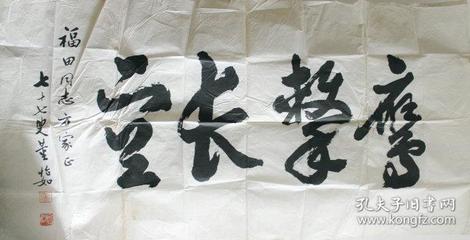 鹰击长空
福田同志方家正
七十七叟董
孔夫子旧书网
www.kongfz.com